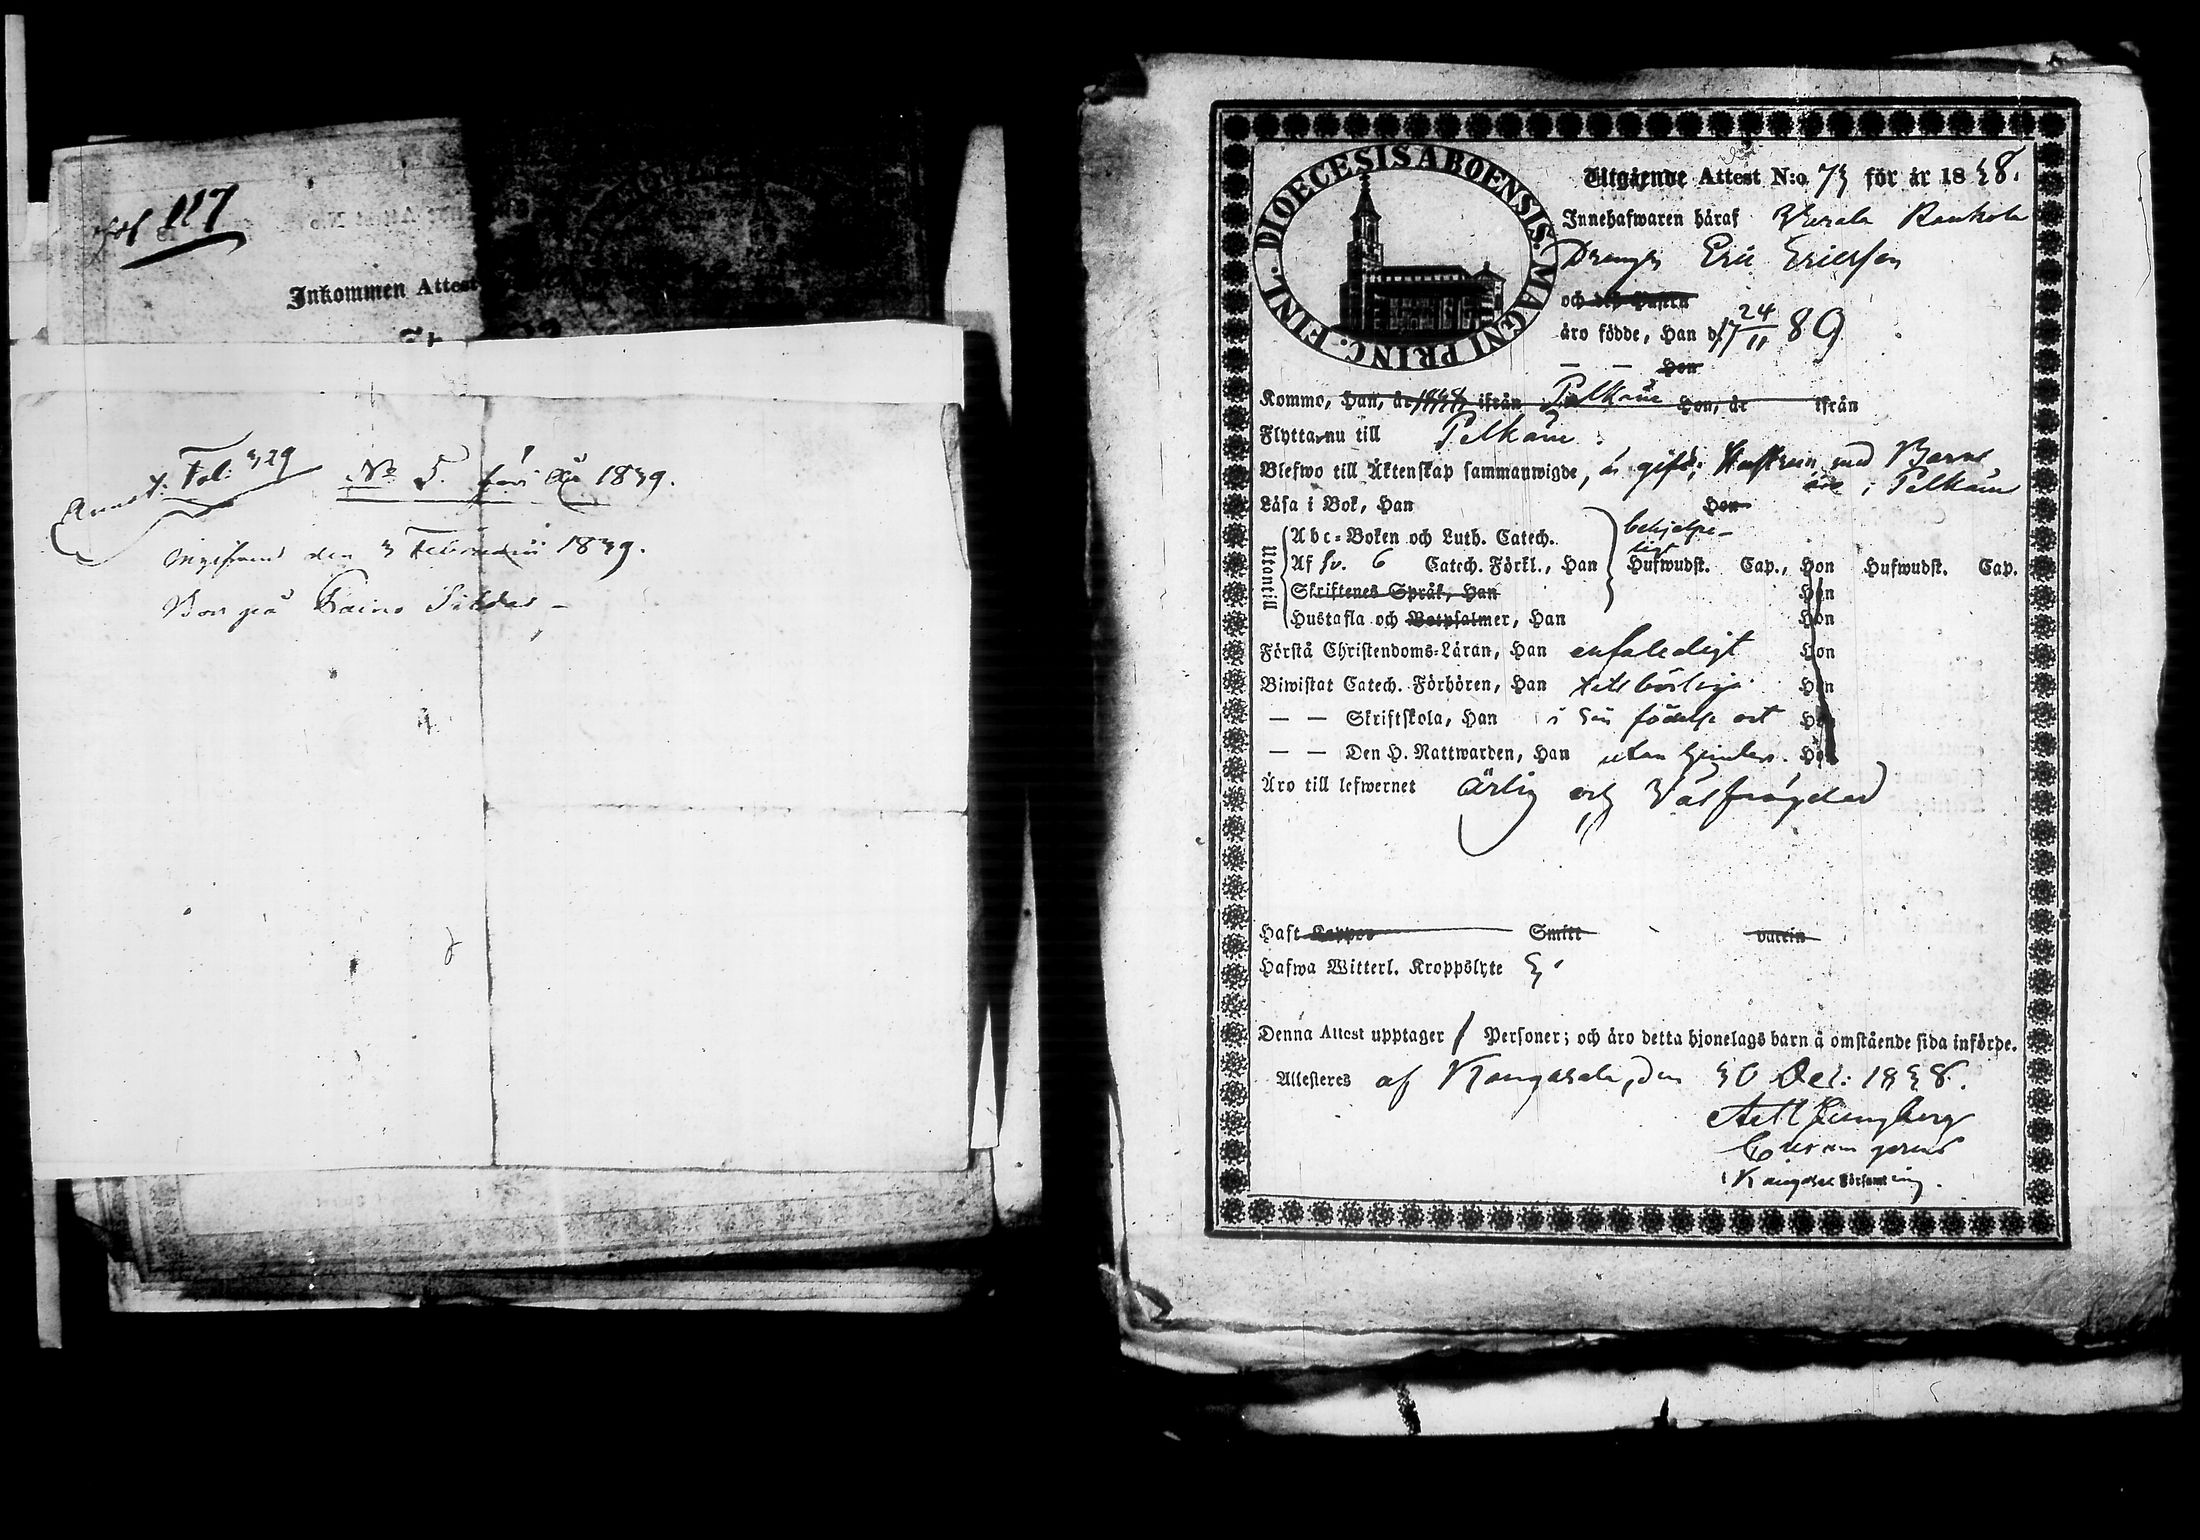 fol 117
Inkommen Attest
Annot. Fol: 329
No 5. för År 1839.
Ingifvend den 3 Februarii 1839.
Bor på
DIOECESIS ABOENSIS. MAGNI PRINC. FINL.
Utgående Attest N:o 73 för år 1838.
Innehafwaren häraf Wkerala Raukola
Drengen Eric Ericsson
och dess Hustru
äro födde, Han d. 17 24/11 89
— — Hon
Kommo, Han, år 1838 ifrån Pelkäne Hon, år ifrån
Flytta nu till Pelkäne
Blefwo till Äktenskap sammanwigde, är gift; Hustrun med Barn
äro i Pelkäne
Läsa i Bok, Han Hon
Utantill
Abc-Boken och Luth. Catech. behjelpe-
ligt
Af Sv. 6 Catech. Förkl., Han Hufwudst. Cap., Hon Hufwudst. Cap.
Skriftenes Språk, Han Hon
Hustafla och Botpsalmer, Han Hon
Förstå Christendoms-Läran, Han enfaldigt Hon
Biwistat Catech. Förhören, Han tillbörligt Hon
— — Skriftskola, Han i sin födelse ort Hon
— — Den H. Nattwarden, Han utan hinder. Hon
Äro till lefwernet ärlig och välfrägdad
Haft Koppor Smitt vaccin
Hafwa Witterl. Kroppslyte Ej.
Denna Attest upptager 1 Personer; och äro detta hjonelags barn å omstående sida införde.
Attesteres af Kangasala, den 30 Dec: 1838.
Ljungberg
Curam gerens
i Kangasala Församling.